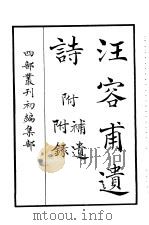 汪容甫遺
詩 附補遺
附錄
四部叢刊初編集部
mtoou.info